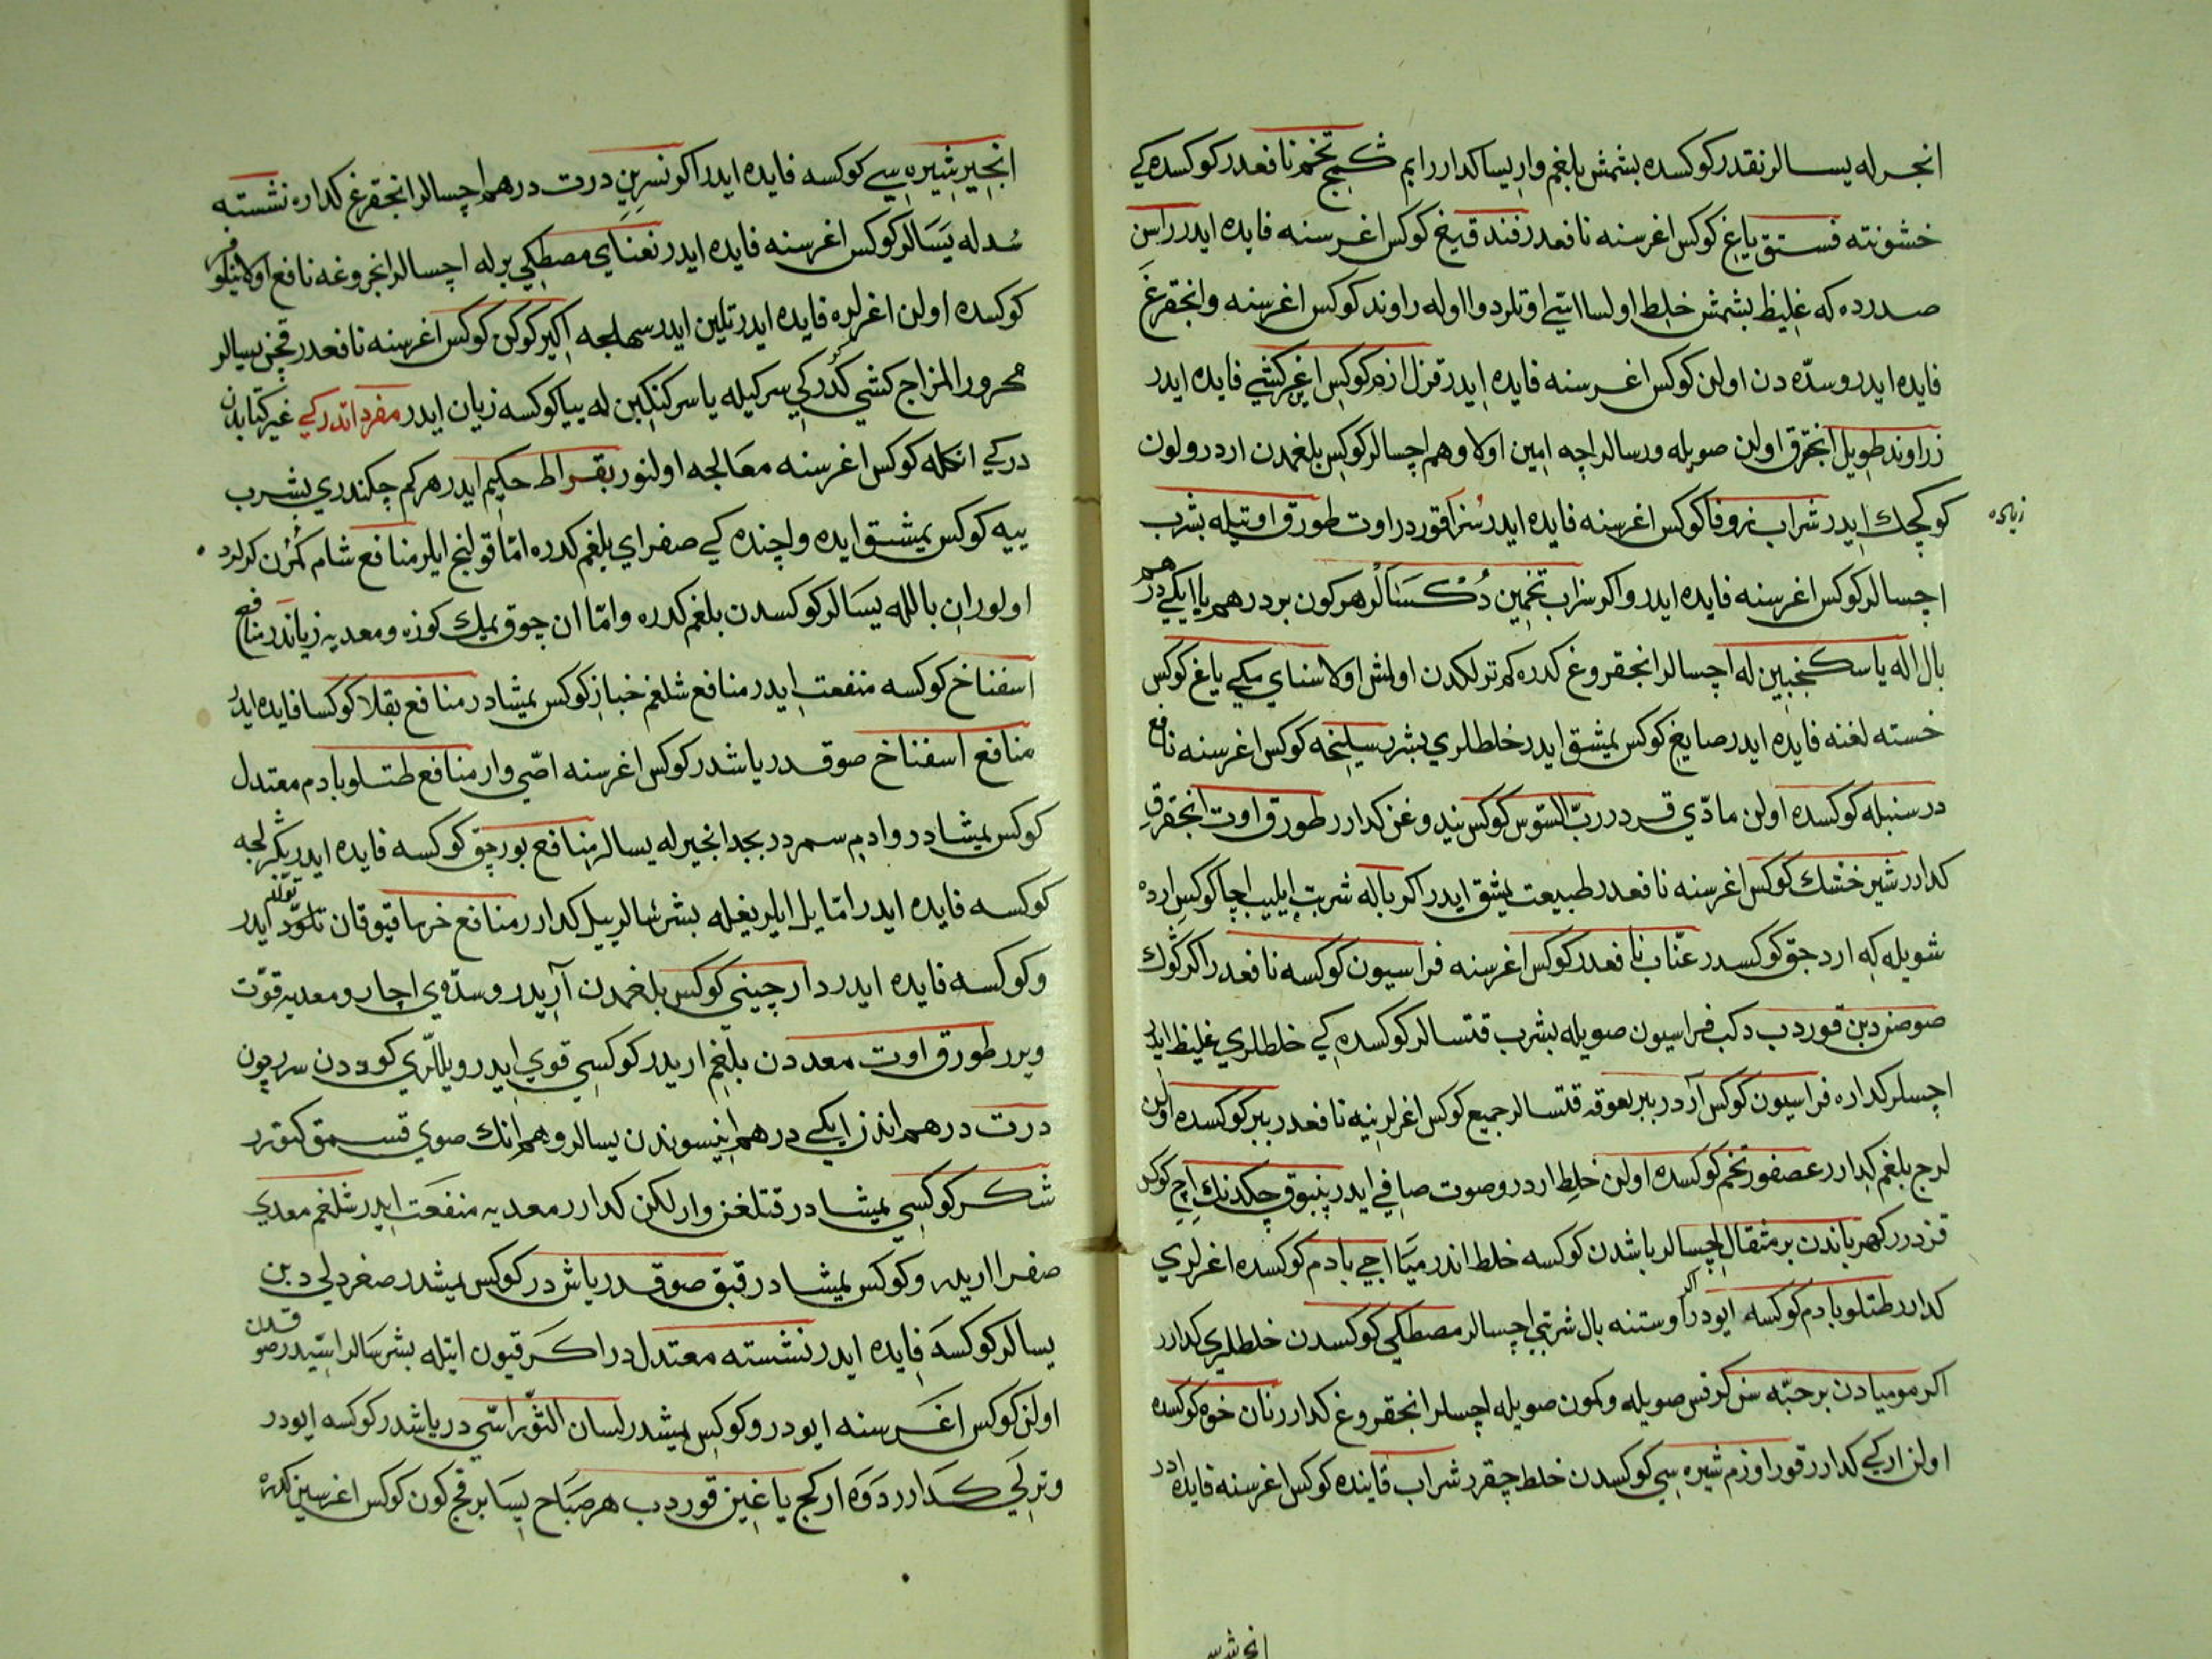 انجرله يسالر نقدر كوكسده بشمش بلغم وار يسا كدارر ايم شكنج تخم نافعدر كوكسده كي
خشونته فستق ياغي كوكس اغرسنه نافعدر فندق قيغ كوكس اغرسنه فايده ايدر راسن
صدرده كه غليظ بشمش خلط اولسا اسّي اوتلردوا اوله راوند كوكس اغرسنه وانجقرغ
فايده ايدر وسدّه دن اولن كوكس اغرسنه فايده ايدر قزل ازم كوكس اغر كشي فايده ايدر
زراوند طويل انجقرق اولن صويله ورسالر اچه امين اولا وهم اچسالر كوكس بلغمدن اردر ولون
كوكچك ايدر شراب زوفا كوكس اغرسنه فايده ايدر سنرا قوردر اوت طورق اوتيله بشرب
زياده
اچسالر كوكس اغرسنه فايده ايدر واكر سراب تخمين دكسالر هركون بر درهم يا ايكي درهم
بال اله يا سكنجبين له اچسالر انجقروغ كدره كم ترلكدن اولمش اولا سناي مكي ياغ كوكس
خسته لغنه فايده ايدر صايغ كوكس يمشق ايدر خلطلري بشرب سليخه كوكس اغرسنه نافع
در سنبله كوكسده اولن مادّي قردر ربّ السّوس كوكس نيدوغن كدارر طورق اوت انجقرق
كدارر شيرخشك كوكس اغرسنه نافعدر طبيعت يمشق ايدر اكر باله شربت ايليب اچا كوكس ارده
شويله كه اردجق كوكسدر عنّاب نافعدر كوكس اغرسنه فراسيون كوكسه نافعدر اكر كوك
صوصنر دبن قوردب دكب فراسيون صويله بشرب قتسالر كوكسده كي خلطلري غليظ ايدر
اچسلر كداره فراسيون كوكس آردر ببر يعوقه قتسالر جميع كوكس اغرلرينه نافعدر ببر كوكسده اولن
لرج بلغم كدارر عصفور تخم كوكسده اولن خلط اردر وصوت صافي ايدر پنبوق چكدنك اچ كوكس
قزدرر كهرباندن بر مثقال اچسالر باشدن كوكسه خلط اندرميا اجي بادم كوكسده اغرلري
كدارر طتلو بادم كوكسه ايودر اكر اوستنه بال شربتي اچسالر مصطكي كوكسدن خلطلري كدارر
اكر موميادن بر حبّه سن كرفس صويله وكمون صويله اچسلر انجقروغ كدارر نان خوه كوكسده
اولن اركي كدارر قور اوزم شيره سي كوكسدن خلط چقرر شراب قاينده كوكس اغرسنه فايده ادر
انجير شيره سي
انجير شيره سي كوكسه فايده ايدر اكو نسرين درت درهم اچسالر انجقرغ كداره نشسته
سدله يسالر كوكس اغرسنه فايده ايدر نعناي مصطكي برله اچسالر انجروغه نافع اولا نيلوفر
كوكسده اولن اغرلره فايده ايدر تلين ايدر سهلجه اكير كوكن كوكس اغرسنه نافعدر قچن يسالر
محرور المزاج كشي كدرر كي سركيله يا سركنكبين له ييا كوكسه زيان ايدر مفرداتدر كي غير كتابدن
در كي انكله كوكس اغرسنه معالجه اولنور بقراط حكيم ايدر هركم چكندري بشرب
ييه كوكس يمشق ايده واچنده كي صفراي بلغم كدره امّا قولنج ايلر منافع شام كمّون كرلرد
اولوران بالله يسالر كوكسدن بلغم كدره وامّا ان چوق يمك كوزه ومعديه زياندر منافع
اسفناخ كوكسه منفعت ايدر منافع شلغم خباز كوكس يمشادر منافع بقلا كوكسا فايده ايدر
منافع اسفناخ صوقدر ياشدر كوكس اغرسنه اصّي وار منافع طتلو بادم معتدل
كوكس يمشادر وادم سمردر بجد انجيرله يسالر منافع بورچق كوكسه فايده ايدر يكرلجه
كوكسه فايده ايدر امّا يل ايلر يغيله بشرسالر ييل كدارر منافع خرما قيو قان تولّد ايدر
وكوكسه فايده ايدر دارچيني كوكس بلغمدن آريدر وسدّه ي اچار ومعديه قوّت
ويرر طورق اوت معددن بلغم اريدر كوكسي قوي ايدر ويللّري كوددن سرر چون
درت درهم اندز ايكي درهم انيسوندن يسالر وهم انك صوي قسمق كتورر
شكر كوكسي يمشادر قتلغن وار لكن كدارر معديه منفعت ايدر شلغم معدي
صفرا اريدر وكوكس يمشادر قبق صوقدر ياش در كوكس يمشدر صغر دلي دبن
يسالر كوكسه فايده ايدر نشسته معتدلدر اكر قيون اتيله بشرسالر اسّيدر صوقدن
اولن كوكس اغرسنه ايودر وكوكس يمشدر لسان الثّور اسّي در ياشدر كوكسه ايودر
وترلكي كدارر دوه اركج ياغين قوردب هر صباح يسا بر قچ كون كوكس اغرسين كدره